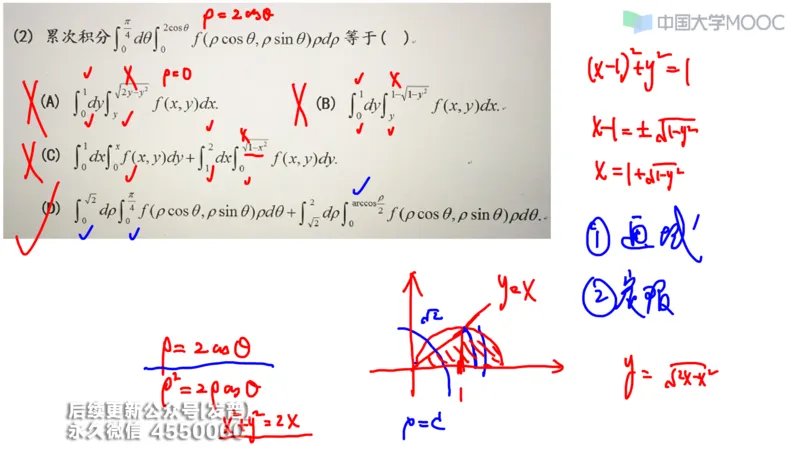 中国大学MOOC
ρ = 2cosθ
(2) 累次积分 ∫_0^{π/4} dθ ∫_0^{2cosθ} f(ρcosθ, ρsinθ)ρdρ 等于 ( ).
ρ=0
(A) ∫_0^1 dy ∫_y^{√(2y−y²)} f(x, y)dx.
(B) ∫_0^1 dy ∫_y^{1−√(1−y²)} f(x, y)dx.
(C) ∫_0^1 dx ∫_0^x f(x, y)dy + ∫_1^2 dx ∫_0^{√(1−x²)} f(x, y)dy.
(D) ∫_0^{√2} dρ ∫_0^{π/4} f(ρcosθ, ρsinθ)ρdθ + ∫_{√2}^2 dρ ∫_0^{arccos ρ/2} f(ρcosθ, ρsinθ)ρdθ.
(x−1)²+y²=1
x−1=±√(1−y²)
x=1+√(1−y²)
① 画域
②
y=x
√2
1
ρ=c
y=√(2x−x²)
ρ=2cosθ
ρ²=2ρcosθ
x²+y²=2x
后续更新公众号(发哥)
永久微信 4550060